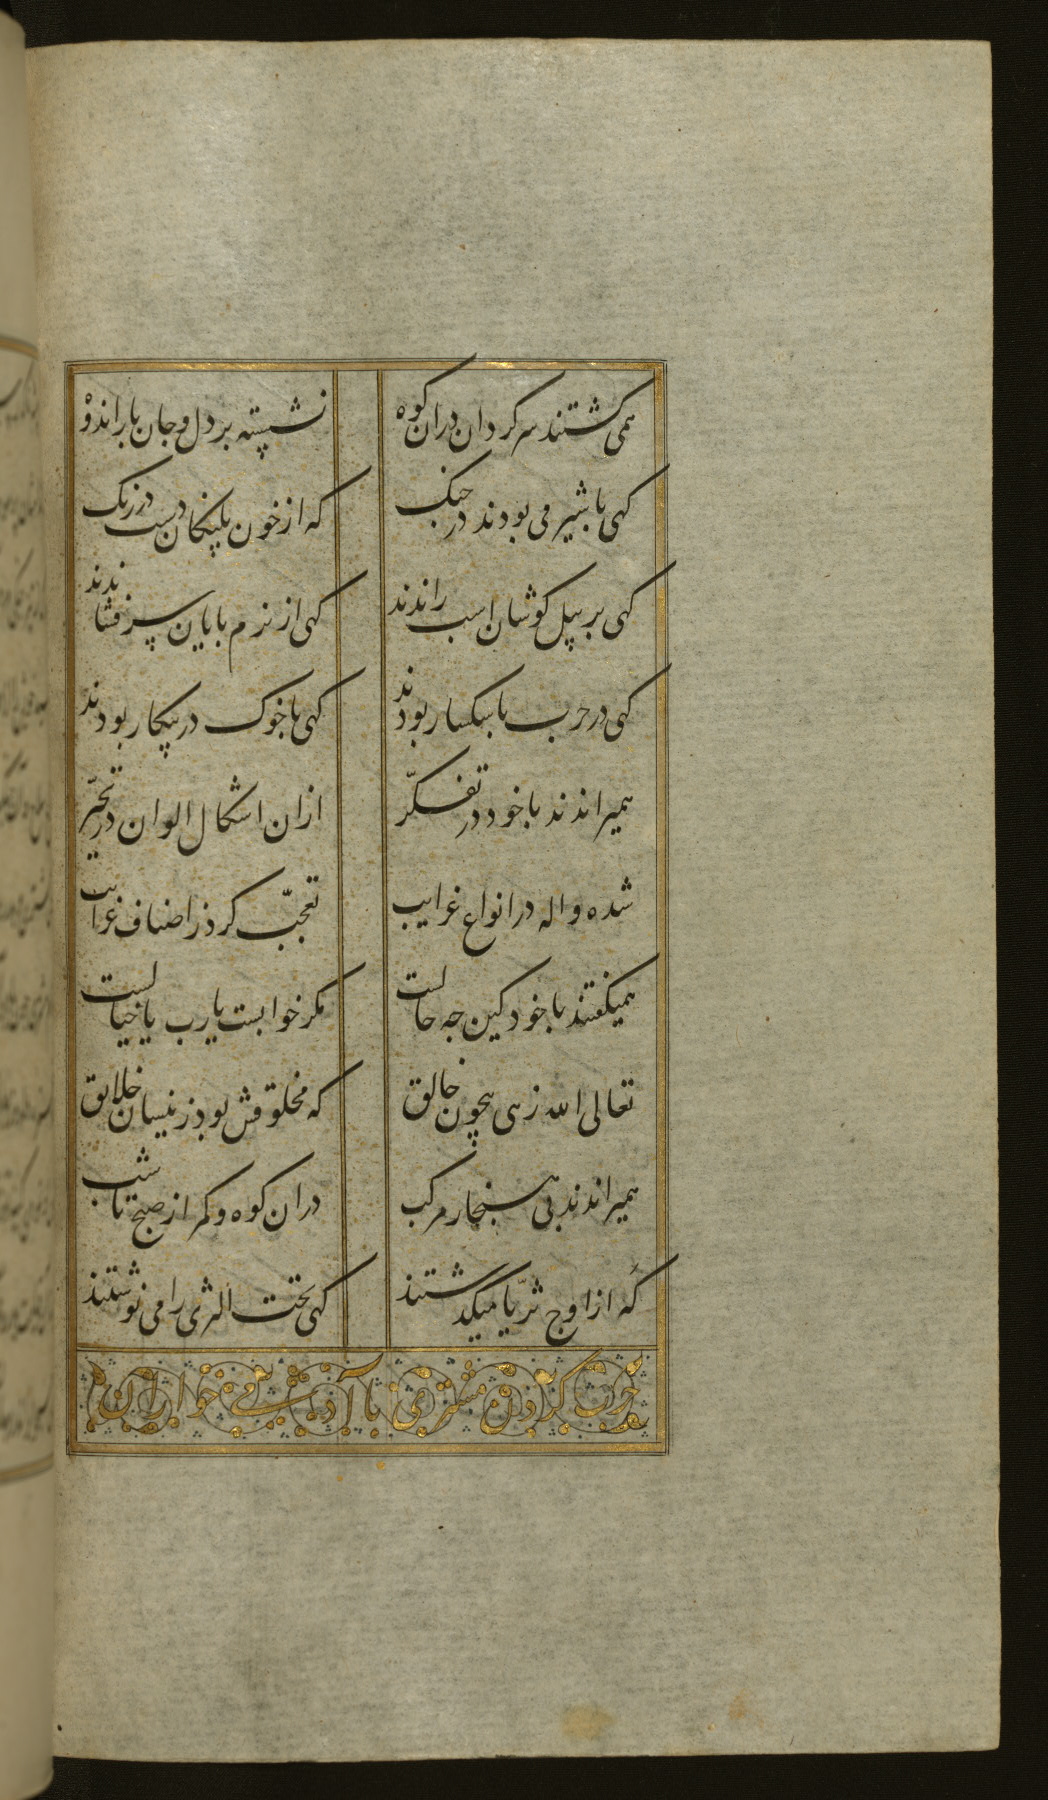 همی گشتند سرگردان دران کوه
نشسته بر دل و جان بار اندوه
کهی با شیر می بودند در جنک
که از خون پلنکان دست در رنک
کهی بر پیل کوشان اسب راندند
کهی از نرم پایان سر فشاندند
کهی در حرب با سکسار بودند
کهی با خوک در پیکار بودند
همیراندند با خود در تفکّر
ازان اشکال الوان در تحیّر
شده واله در انواع غرایب
تعجّب کرد ز اصناف غرایب
همیکفتند با خود کین چه حالست
مکر خوابست یا رب یا خیالست
تعالی الله زهی بیچون خالق
که مخلوقش بود زینسان خلایق
همیراندند بی هنجار مرکب
دران کوه و کمر از صبح تا شب
که از اوج ثریّا میکذشتند
کهی تحت الثری را می نوشتند
حرب کردن مشتری با آدمی خواران